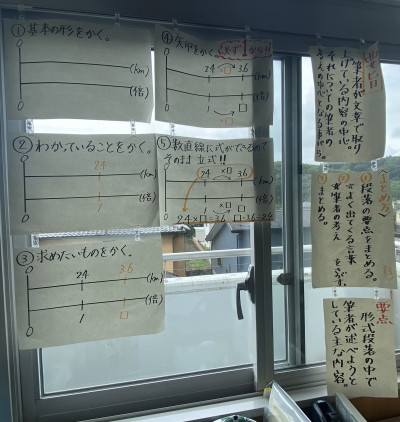 ①基本の形をかく。
0
(km)
(倍)
0
②わかっていることをかく。
24
0
(km)
(倍)
0
1
③求めたいものをかく。
0
24
36
(km)
(倍)
0
1
□
④矢印をかく。必ず1から!!
×□
24
36
0
(km)
(倍)
0
1
□
×□
⑤数直線に式がでているので
そのまま立式!!
×□
24
36
0
(km)
(倍)
0
1
□
×□
24×□=36
要旨
筆者が文章で取り
上げている内容の中心。
それについての筆者の
考えの中心となる事がら。
(まとめ方)
段落の要点をまとめる。
☆よく出てくる言葉
☆筆者の考え
まとめる。
要点
形式段落の中で
筆者が述べようと
している主な内容。